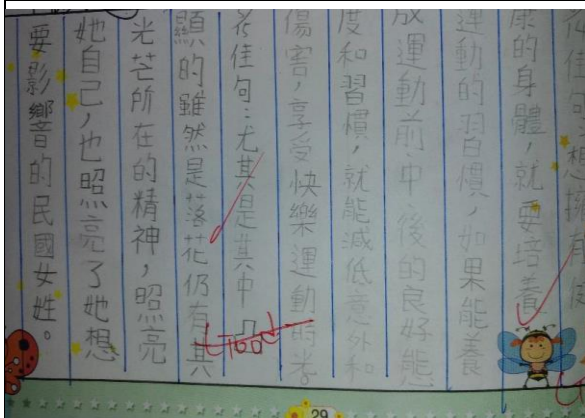 佳句:想擁有
康的身體,就要培養
運動的習慣,如果能養
成運動前、中、後的良好態
度和習慣,就能減低意外和
傷害,享受快樂運動的
名佳句:尤其是其中凸
顯的雖然是落花仍有其
光芒所在的精神,照亮
她自己,也照亮了她想
要影響的民國女姓。
100
29